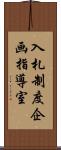 入札制度企
画指導室